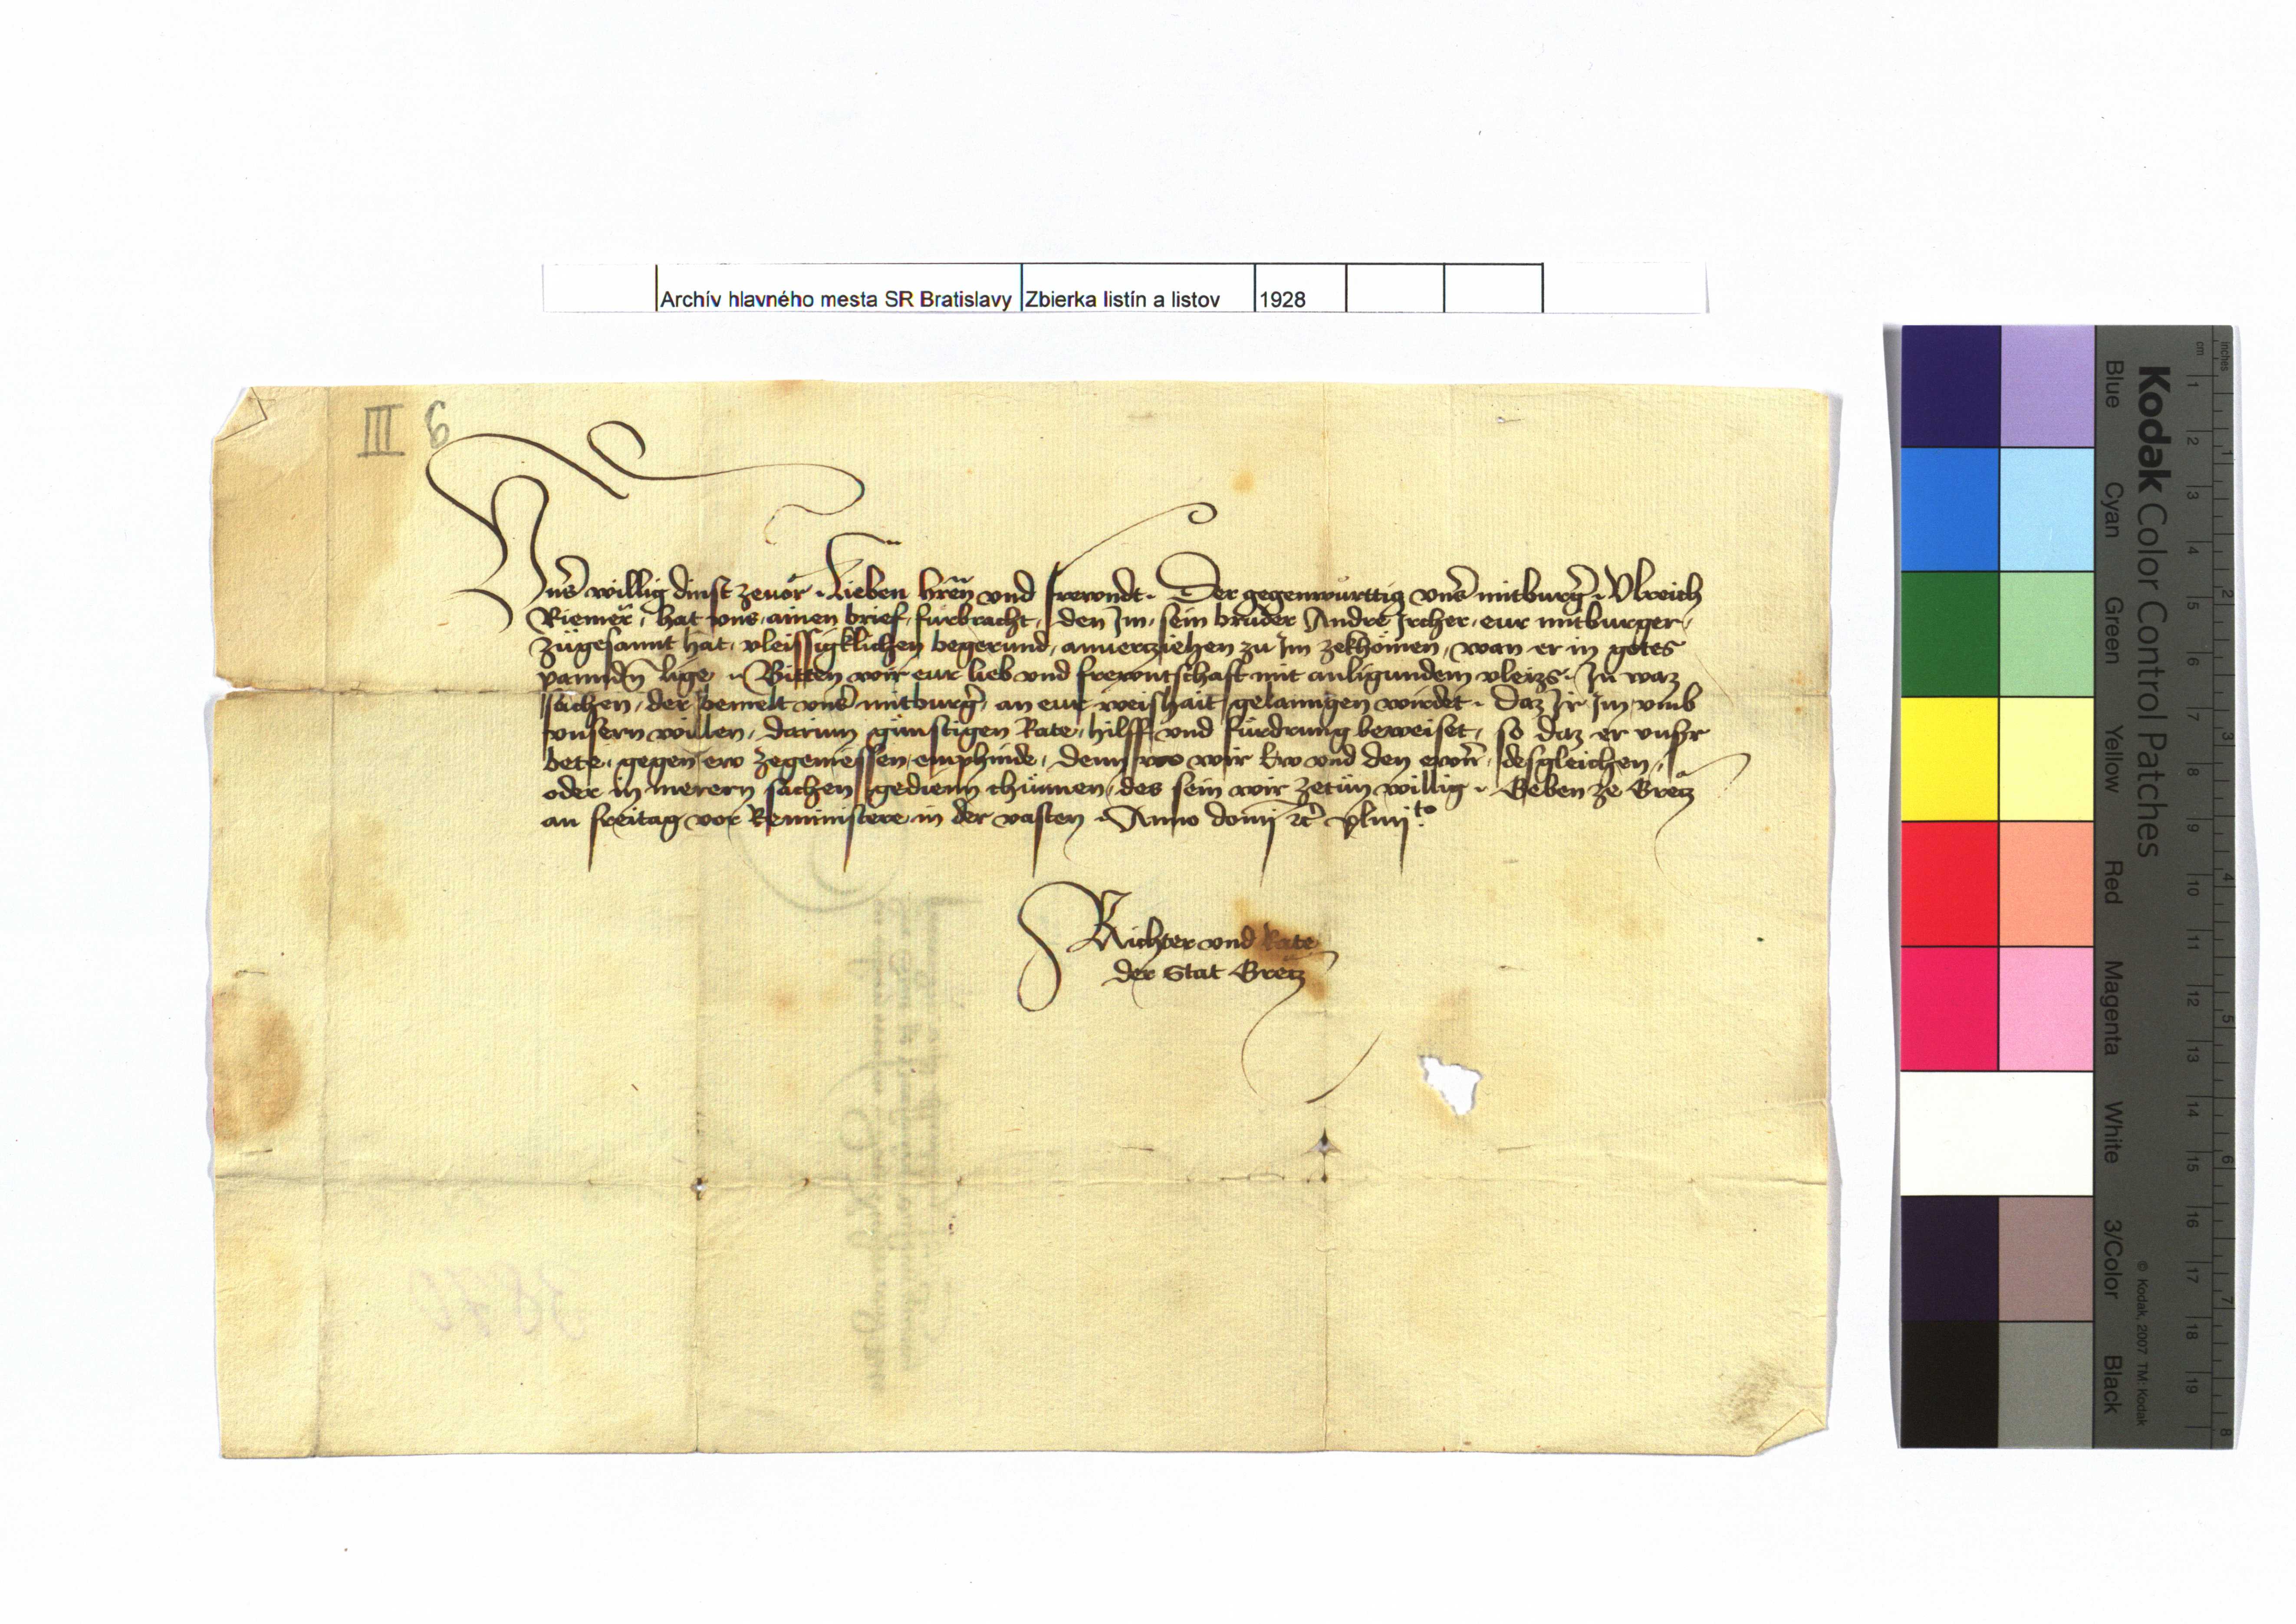 Archív hlavného mesta SR Bratislavy Zbierka listín a listov 1928
III 6
Uns̉ willig dinst zeuor. Lieben hren̄ vnd frewndt. Der gegenwürttig vns̉ mitburg̉ Vlreich
Riemer, hat vns, ainen brief, fürbracht, den Im, sein brüder Andre Ircher, eur mitburger,
zügesannt hat, vleissigklichen begerund, anuerziehen zu Im zekhömen, wan er in gotes
panndn̄ lige. Bitten wir eur lieb vnd frewntschaft mit anligundem vleizs. In waz
sachen, der bemelt vns̉ mitburg̉, an eur weishait gelanngen wirdet. Daz Ir Im vmb
vnsern willen, darinn günstigen Rate, hilff vnd fürdrung beweiset, so daz er vnsr
bete, gegen ew zegeniessen emphinde, denn wo wir Ew vnd den ewrn̄, desgleichen,
oder in merern sachen gedienn chünnen, des sein wir zetün willig. Geben ze Gretz
an freitag vor Reministere in der vasten. Anno domī ꝛc̉ xlmj to
Richter vnd Rate
der Stat Gretz
Kodak Color Control Patches
Blue Cyan Green Yellow Red Magenta White 3/Color Black
© Kodak, 2007 TM: Kodak
inches 1 2 3 4 5 6 7 8
cm 1 2 3 4 5 6 7 8 9 10 11 12 13 14 15 16 17 18 19